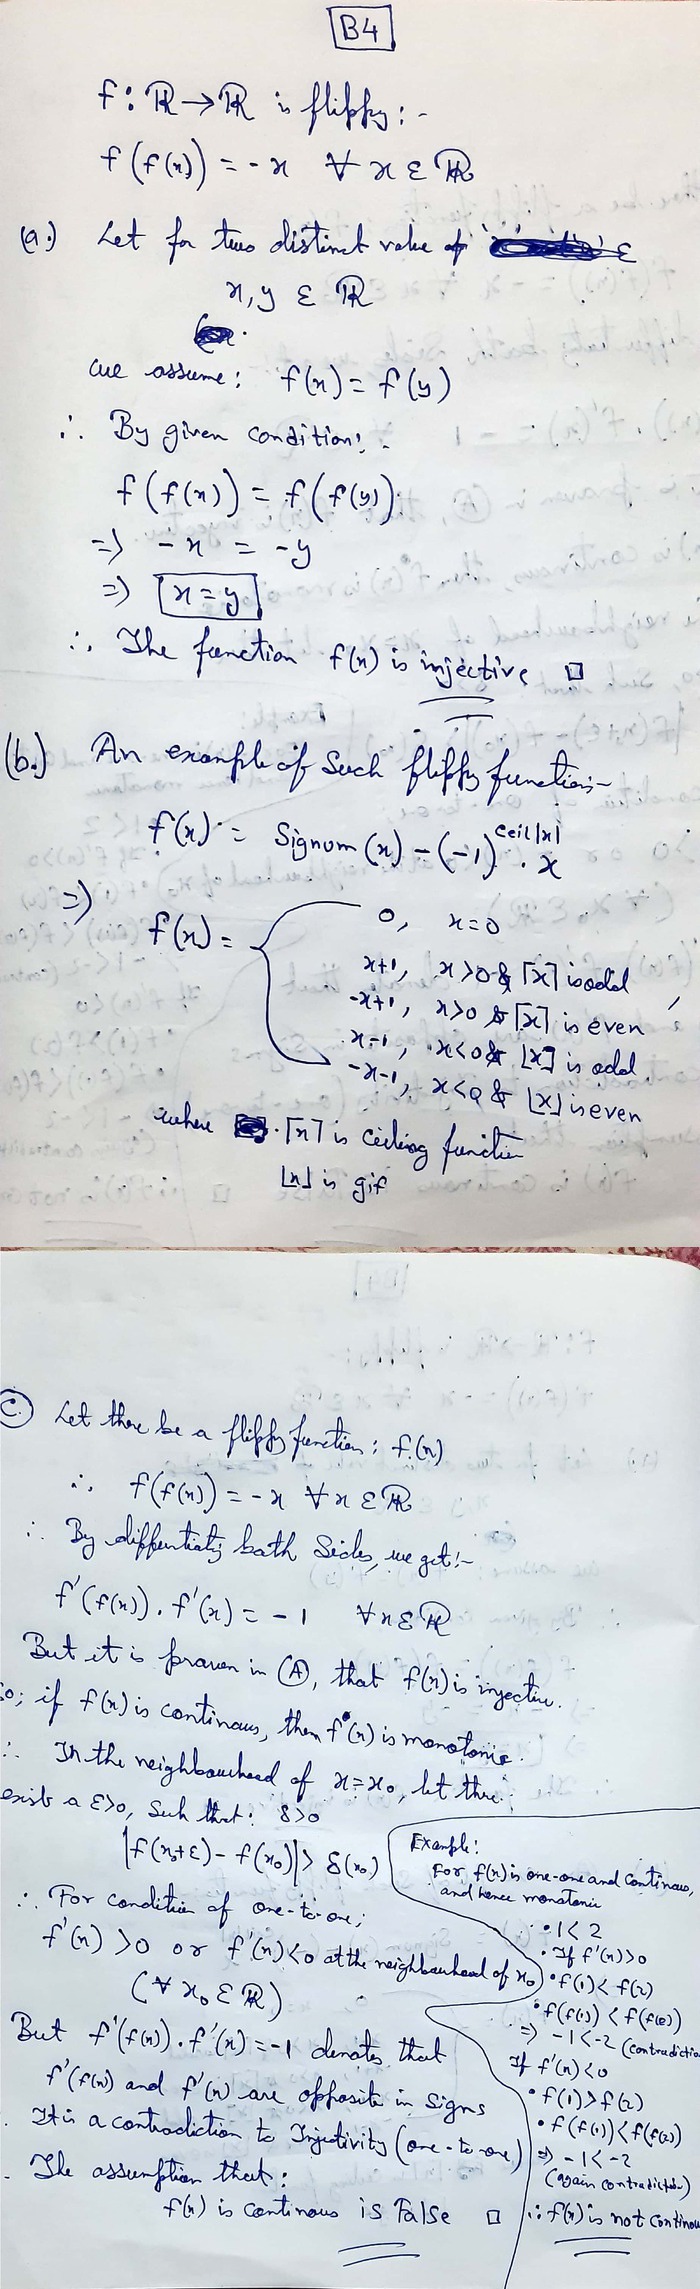 B4
f : ℝ → ℝ is flippy :-
f(f(x)) = -x ∀ x ε ℝ
(a.) Let for two distinct value of ε
x, y ε ℝ
we assume: f(x) = f(y)
∴ By given condition:-
f(f(x)) = f(f(y))
=> -x = -y
=> x = y
∴ The function f(x) is injective □
(b.) An example of such flippy function:-
f(x) = Signum(x) - (-1)^ceil|x| · x
=> f(x) =
0, x=0
x+1, x>0 & ⌈x⌉ is odd
-x+1, x>0 & ⌈x⌉ is even
x-1, x<0 & ⌊x⌋ is odd
-x-1, x<0 & ⌊x⌋ is even
where ⌈x⌉ is ceiling function
⌊x⌋ is gif
C. Let there be a flippy function: f(x)
∴ f(f(x)) = -x ∀ x ε ℝ
∴ By differentiatig both Sides, we get:-
f'(f(x)) . f'(x) = -1 ∀ x ε ℝ
But it is proven in (A), that f(x) is injective.
So; if f(x) is continous, then f(x) is monotonic.
∴ In the neighbourhood of x=x₀, let there
exist a ε>0, such that: δ>0
|f(x₀+ε) - f(x₀)| > δ(x₀)
∴ For condition of one-to-one;
f'(x) >0 or f'(x)<0 at the neighbourhood of x₀
(∀ x₀ ε ℝ)
But f'(f(x)) . f'(x) = -1 denotes that
f'(f(x)) and f'(x) are opposite in Signs
. It is a contradiction to Injectivity (one-to-one)
. The assumption that:
f(x) is continous is False □
Example:
For f(x) is one-one and continous,
and hence monotonic
• 1<2
• If f'(x)>0
• f(1)<f(2)
• f(f(1)) < f(f(2))
=> -1<-2 (contradictio
If f'(x)<0
• f(1)>f(2)
• f(f(1))<f(f(2))
=> -1<-2
(again contradictio)
∴ f(x) is not continou